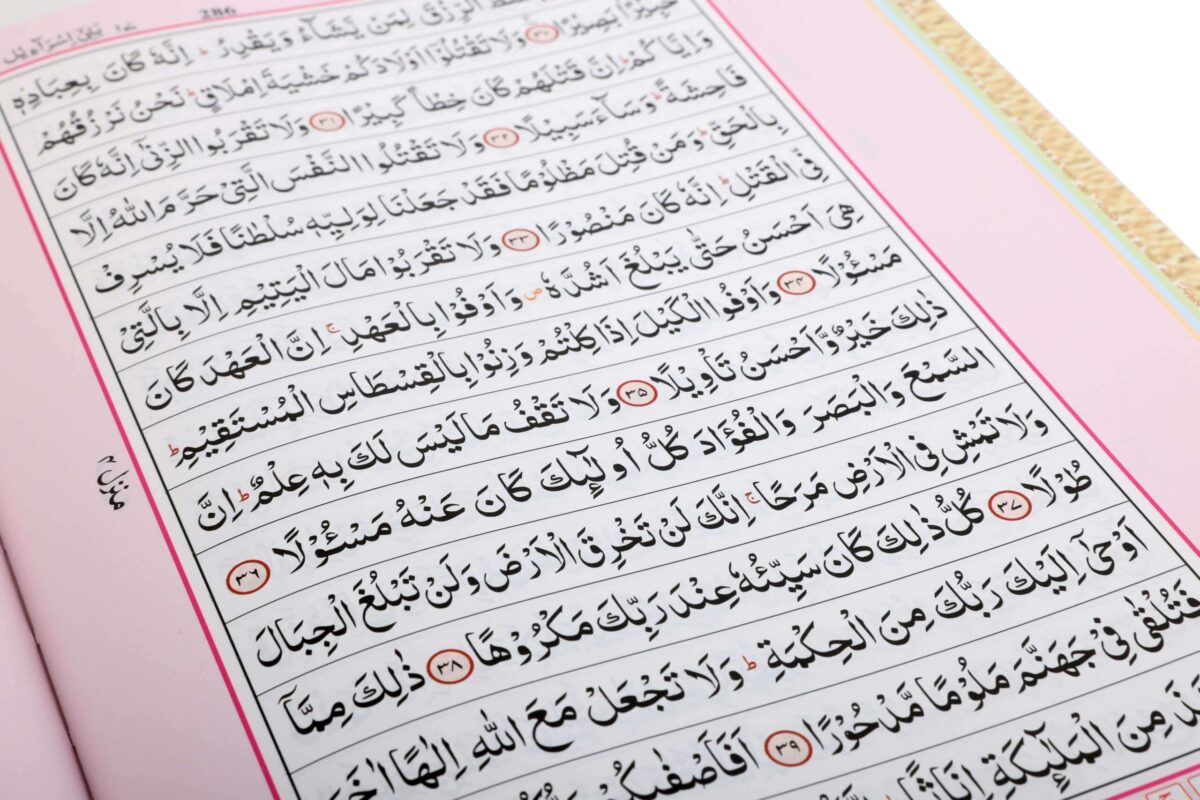 286
بَنِیْٓ اِسْرَآءِیْل ١٧
الرِّزْقَ لِمَنْ یَّشَآءُ وَیَقْدِرُ ؕ اِنَّهٗ كَانَ بِعِبَادِهٖ
خَبِیْرًۢا بَصِیْرًا ﴿٣٠﴾ وَلَا تَقْتُلُوْۤا اَوْلَادَكُمْ خَشْیَةَ اِمْلَاقٍ ؕ نَحْنُ نَرْزُقُهُمْ
وَاِیَّاكُمْ ؕ اِنَّ قَتْلَهُمْ كَانَ خِطْاً كَبِیْرًا ﴿٣١﴾ وَلَا تَقْرَبُوا الزِّنٰۤی اِنَّهٗ كَانَ
فَاحِشَةً ؕ وَسَآءَ سَبِیْلًا ﴿٣٢﴾ وَلَا تَقْتُلُوا النَّفْسَ الَّتِیْ حَرَّمَ اللّٰهُ اِلَّا
بِالْحَقِّ ؕ وَمَنْ قُتِلَ مَظْلُوْمًا فَقَدْ جَعَلْنَا لِوَلِیِّهٖ سُلْطٰنًا فَلَا یُسْرِفْ
فِّی الْقَتْلِ ؕ اِنَّهٗ كَانَ مَنْصُوْرًا ﴿٣٣﴾ وَلَا تَقْرَبُوْا مَالَ الْیَتِیْمِ اِلَّا بِالَّتِیْ
هِیَ اَحْسَنُ حَتّٰی یَبْلُغَ اَشُدَّهٗ ۪ وَاَوْفُوْا بِالْعَهْدِ ۚ اِنَّ الْعَهْدَ كَانَ
مَسْئُوْلًا ﴿٣٤﴾ وَاَوْفُوا الْكَیْلَ اِذَا كِلْتُمْ وَزِنُوْا بِالْقِسْطَاسِ الْمُسْتَقِیْمِ ؕ
ذٰلِكَ خَیْرٌ وَّاَحْسَنُ تَاْوِیْلًا ﴿٣٥﴾ وَلَا تَقْفُ مَا لَیْسَ لَكَ بِهٖ عِلْمٌ ؕ اِنَّ
السَّمْعَ وَالْبَصَرَ وَالْفُؤَادَ كُلُّ اُولٰٓئِكَ كَانَ عَنْهُ مَسْئُوْلًا ﴿٣٦﴾
وَلَا تَمْشِ فِی الْاَرْضِ مَرَحًا ۚ اِنَّكَ لَنْ تَخْرِقَ الْاَرْضَ وَلَنْ تَبْلُغَ الْجِبَالَ
طُوْلًا ﴿٣٧﴾ كُلُّ ذٰلِكَ كَانَ سَیِّئُهٗ عِنْدَ رَبِّكَ مَكْرُوْهًا ﴿٣٨﴾ ذٰلِكَ مِمَّاۤ
اَوْحٰۤی اِلَیْكَ رَبُّكَ مِنَ الْحِكْمَةِ ؕ وَلَا تَجْعَلْ مَعَ اللّٰهِ اِلٰهًا اٰخَرَ
فَتُلْقٰی فِیْ جَهَنَّمَ مَلُوْمًا مَّدْحُوْرًا ﴿٣٩﴾ اَفَاَصْفٰىكُمْ
مِنَ الْمَلٰٓئِكَةِ اِنَاثًا
منزل ٤